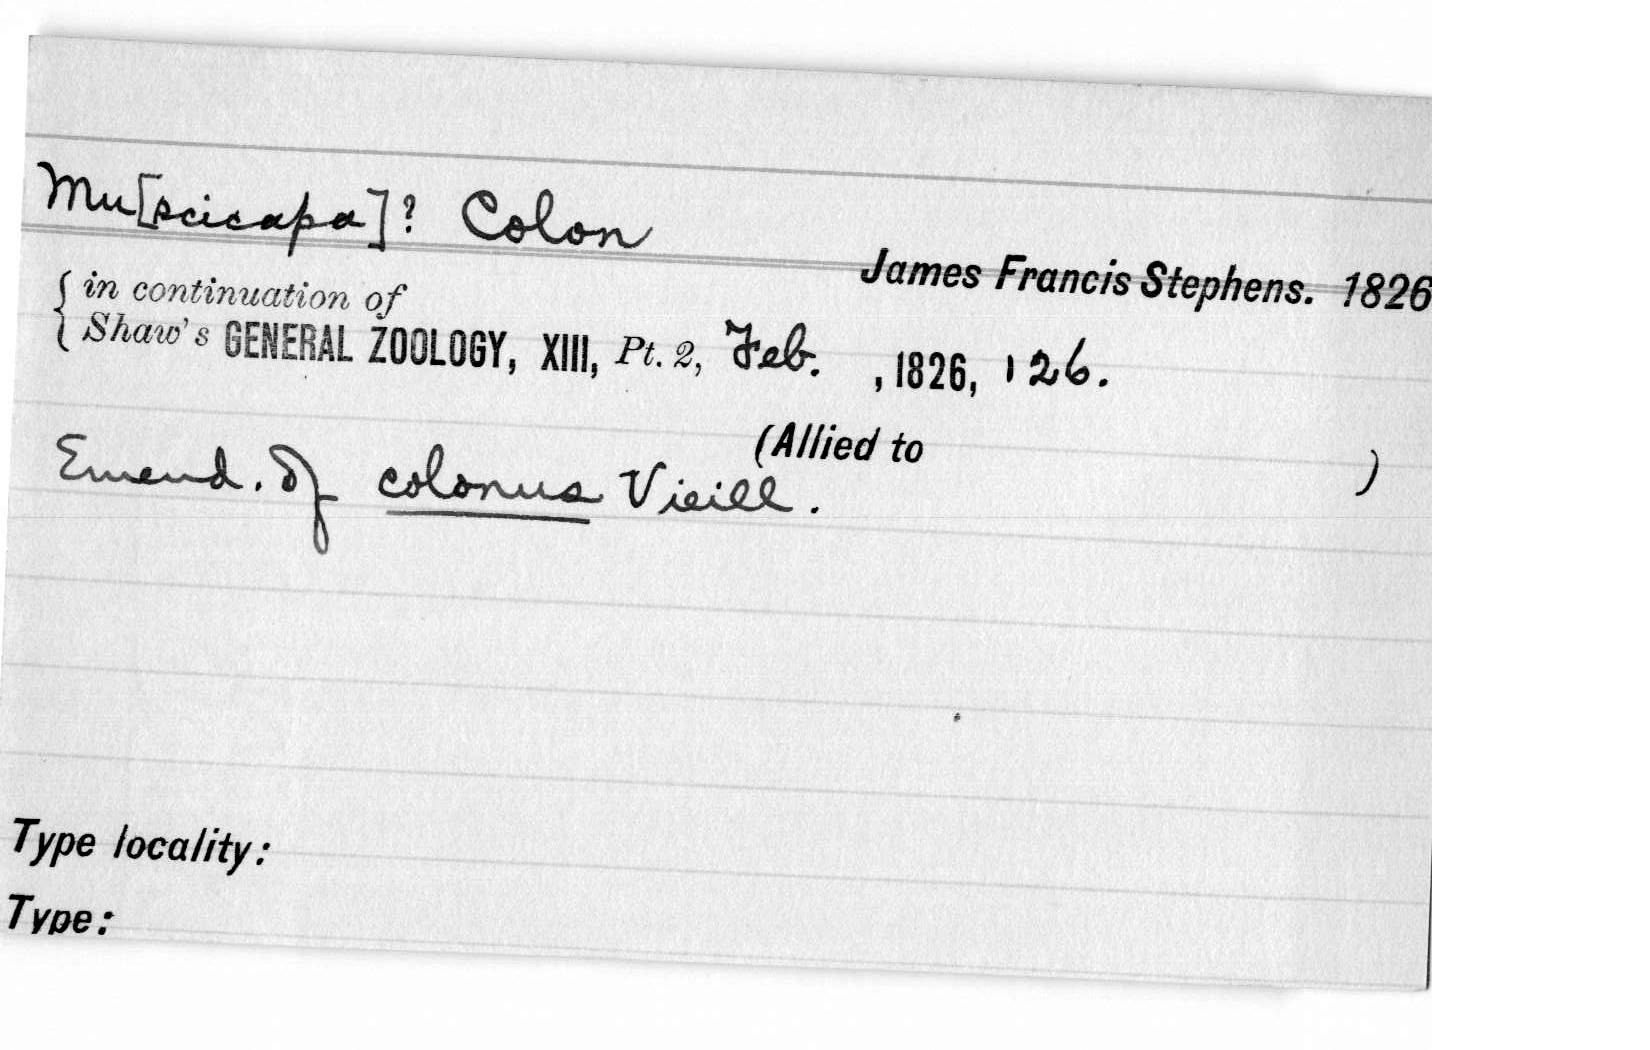 Mu[scicapa]? Colon
James Francis Stephens. 1826
{ in continuation of
Shaw's GENERAL ZOOLOGY, XIII, Pt. 2, Feb. , 1826, 126.
(Allied to )
Emend. of colonus Vieill.
Type locality:
Type: